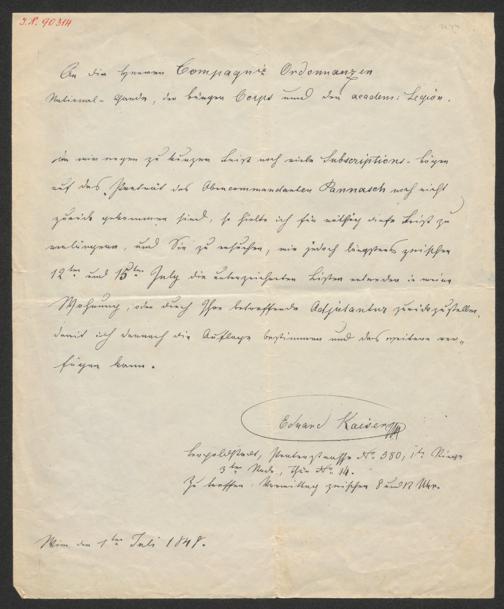 I.N. 90314
An die Herren Compagnie Ordonnanzen
National-Garde, der bürger Corps und der academ: Legion.
Da mir wegen zu kurzer Frist noch viele Subscriptions-bögen
auf das Portrait des Obercommandanten Pannasch noch nicht
zurück gekommen sind, so halte ich für nöthig diese Frist zu
verlängern, und Sie zu ersuchen, mir jedoch längstens zwischen
12ten und 15ten July die unterzeichneten Listen entweder in meine
Wohnung, oder durch Ihre betreffende Adjutantur zurückzustellen,
damit ich darnach die Auflage bestimmen und das weitere ver-
fügen kann.
Eduard Kaiser
Leopoldstadt, Praterstrasse No. 580, 1te Stiege
3ter Stock, Thür No. 14.
Zu treffen Vormittag zwischen 8 und 12 Uhr.
Wien den 1ten Juli 1848.